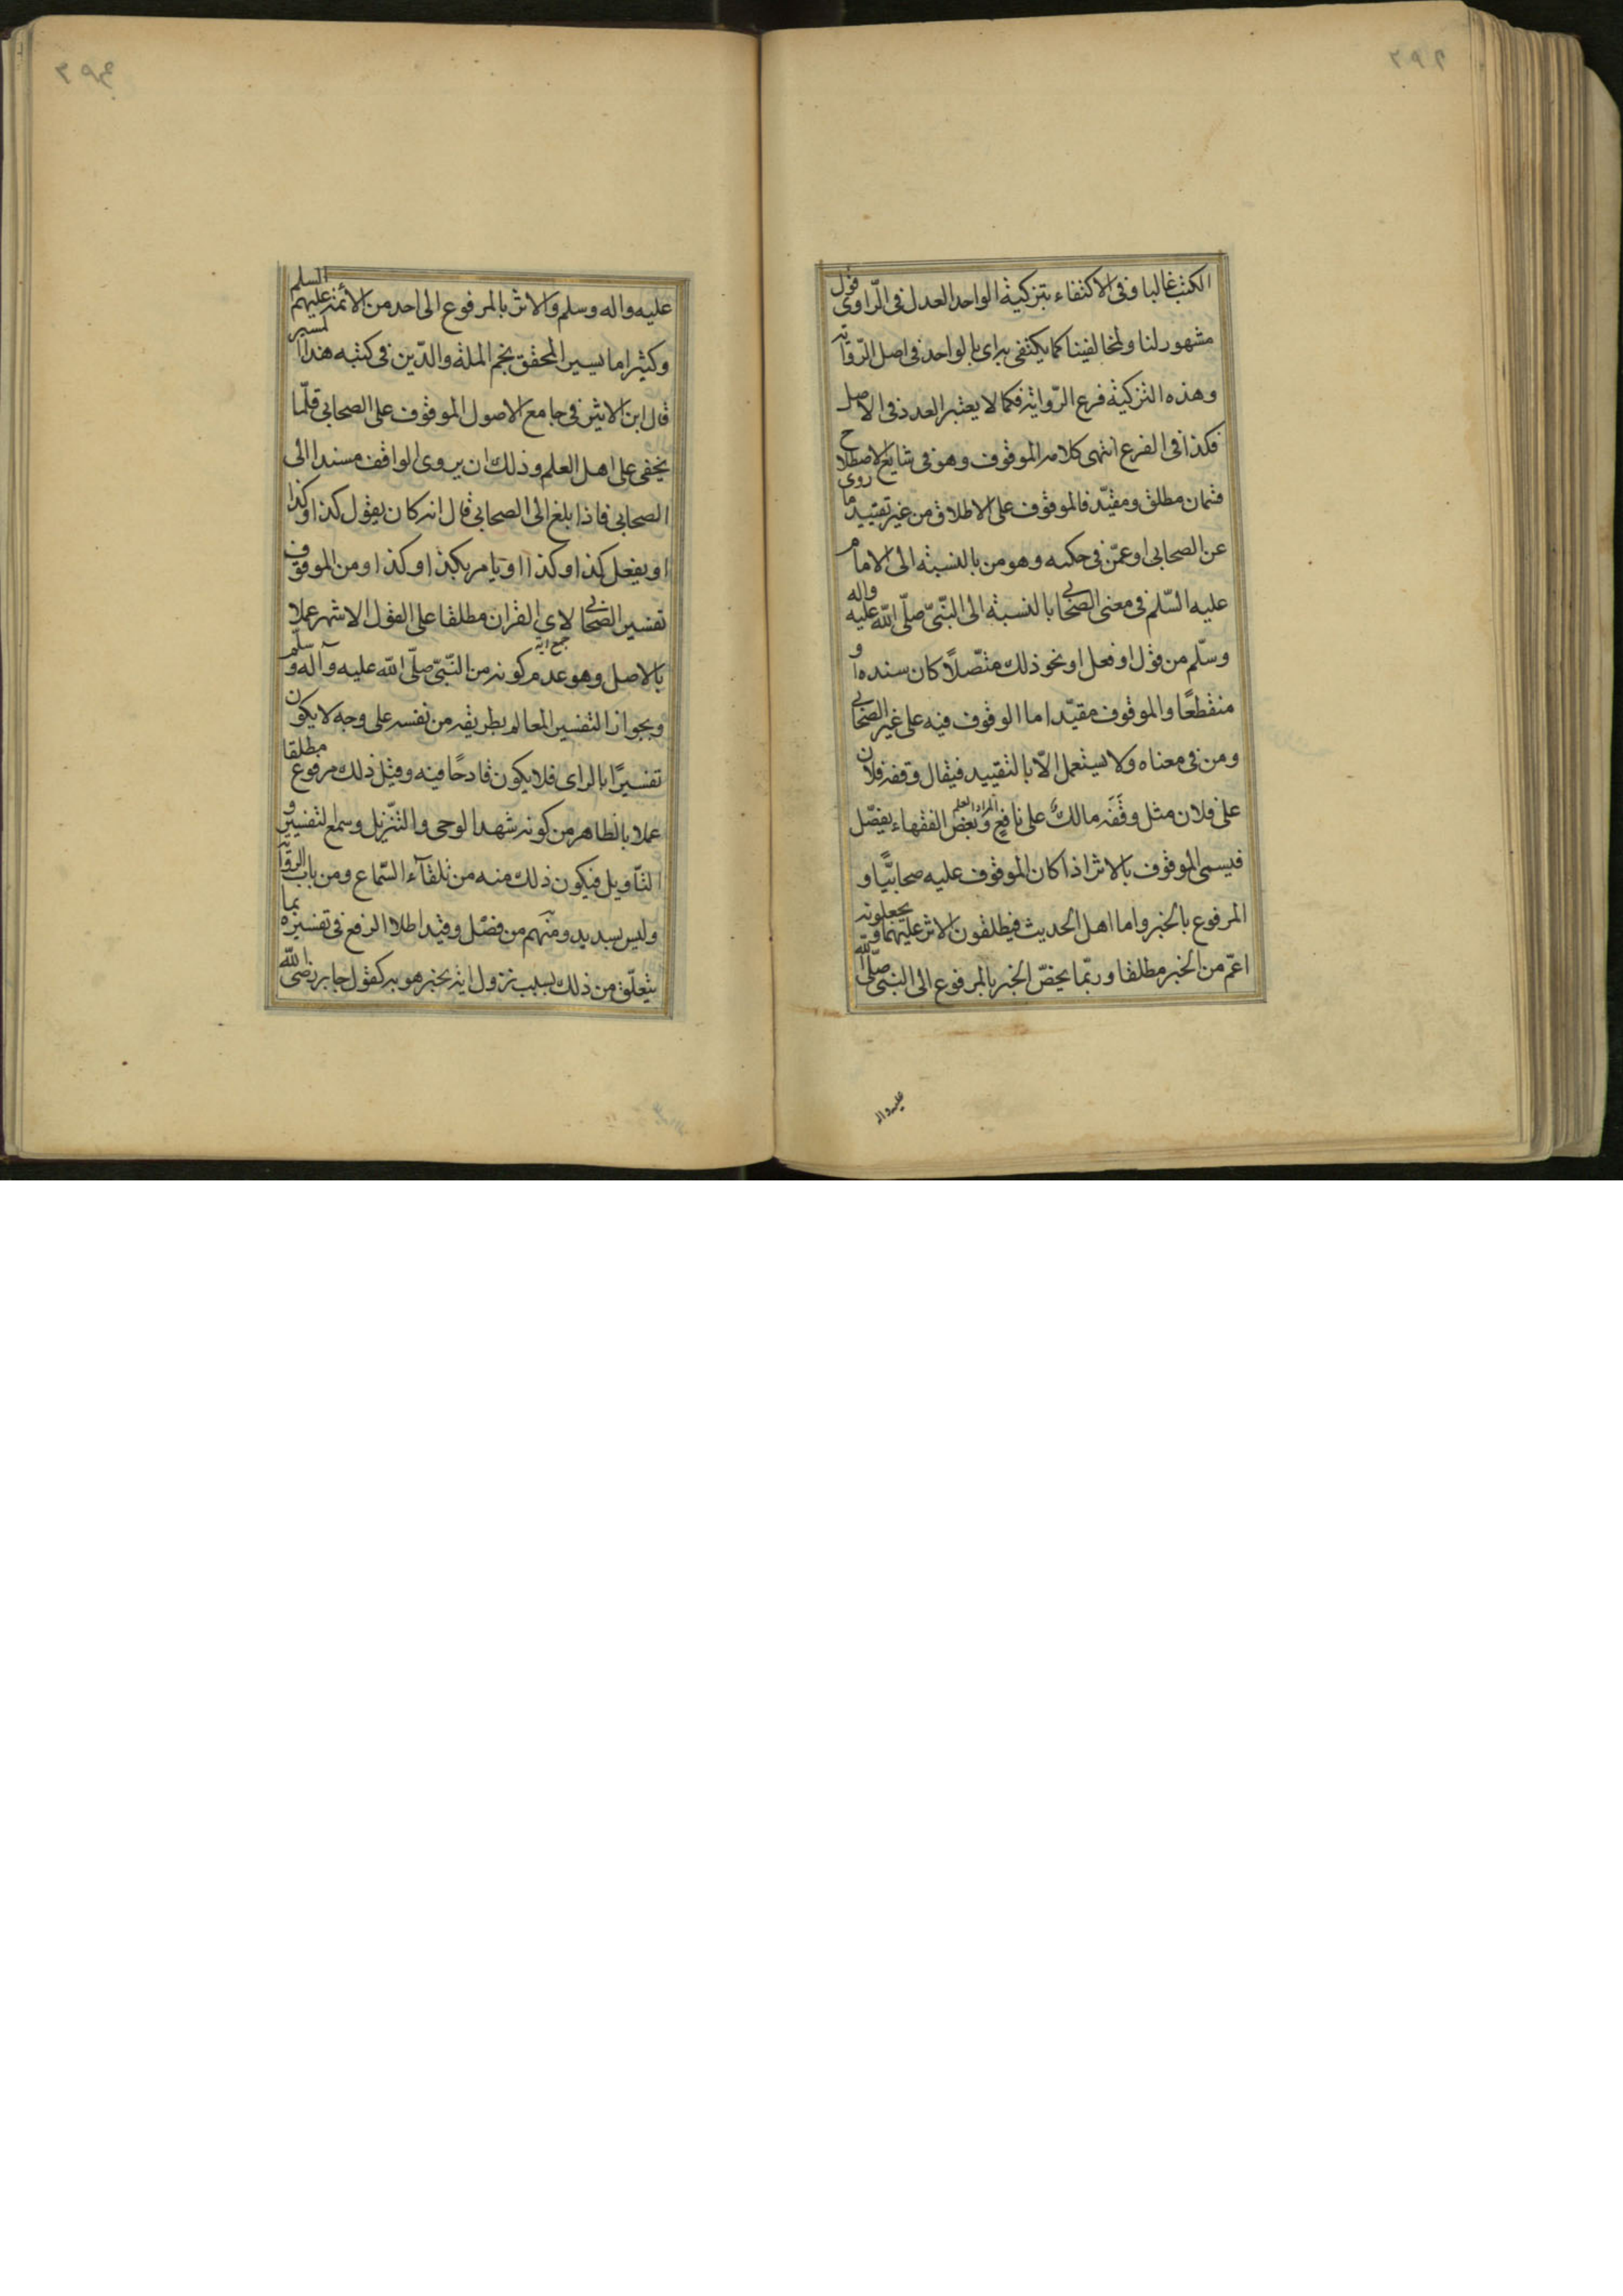 الكتب غالبا وفى الاكتفاء بتزكية الواحد العدل فى الرّاوى قول
مشهور لنا ولمخالفينا كما يكتفى به اى بالواحد فى اصل الرّواية
وهذه التزكية فرع الرّواية فكما لا يعتبر العدد فى الاصل
فكذا فى الفرع انتهى كلامه الموقوف وهو فى شايع الاصطلاح
قسمان مطلق ومقيّد فالموقوف على الاطلاق من غير تقييد ما روى
عن الصحابى او عمّن فى حكمه وهو من بالنسبة الى الامام
عليه السّلم فى معنى الصحابى بالنسبة الى النّبىّ صلّى اللّه عليه واله
وسلّم من قول او فعل او نحو ذلك متّصلًا كان سنده او
منقطعًا والموقوف مقيّدا ما الوقوف فيه على غير الصحابى
ومن فى معناه ولا يستعمل الّا بالتقييد فيقال وقفه فلان
على فلان مثل وَقَفَه مالك على نافع وبعض الفقهاء يفصّل
فيسمى الموقوف بالاثر اذا كان الموقوف عليه صحابيًّا و
المرفوع بالخبر واما اهل الحديث فيطلقون الاثر عليهما ويجعلونه
اعمّ من الخبر مطلقا وربّما يخصّ الخبر بالمرفوع الى النبى صلّى اللّه
عليه واله
عليه واله وسلم والاثر بالمرفوع الى احد من الائمة عليهم السلم
وكثيرا ما يسير المحقق نجم الملة والدّين فى كتبه هذا المسير
قال ابن الاثير فى جامع الاصول الموقوف على الصحابى قلّما
يخفى على اهل العلم وذلك ان يروى الواقف مسندا الى
الصحابى فاذا بلغ الى الصحابى قال انه كان يقول كذا وكذا
او يفعل كذا وكذا او يامر بكذا وكذا ومن الموقوف
تفسير الصحابى لاى القران مطلقا على القول الاشهر عملا
جمع اية
بالاصل وهو عدم كونه من النّبىّ صلّى اللّه عليه وآله وسلّم
وبجواز التفسير للعالم بطريقه من نفسه على وجه لا يكون
تفسيرًا بالراى فلا يكون قادحًا فيه وقيل ذلك مرفوع مطلقا
عملا بالظاهر من كونه شهد الوحى والتّنزيل وسمع التفسير و
التّاويل فيكون ذلك منه من تلقآء السّماع ومن باب الرواية
وليس بسديد ومنهم من فصّل وقيد اطلاا الرفع فى تفسيره بما
يتعلّق من ذلك بسبب نزول اية يخبر هو به كقول جابر رضى اللّه